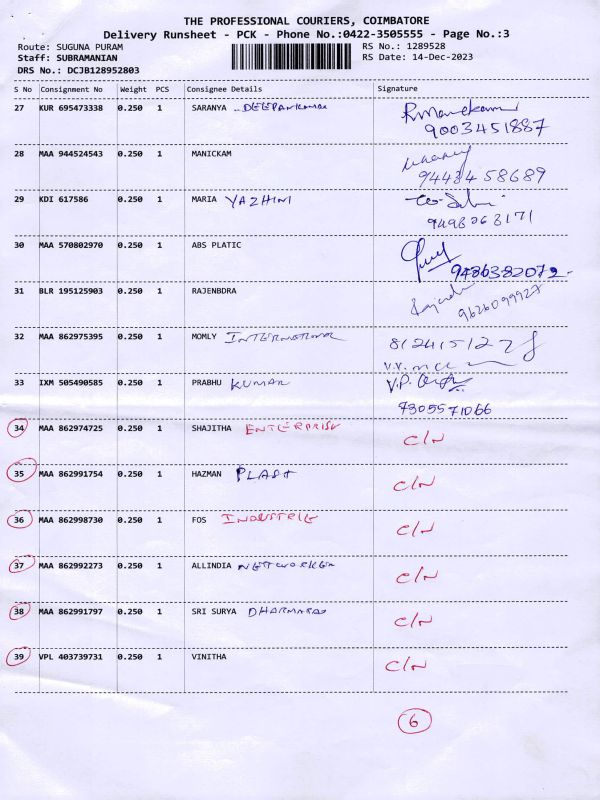 THE PROFESSIONAL COURIERS, COIMBATORE
Delivery Runsheet - PCK - Phone No.:0422-3505555 - Page No.:3
Route: SUGUNA PURAM RS No.: 1289528
Staff: SUBRAMANIAN RS Date: 14-Dec-2023
DRS No.: DCJB128952803
S No Consignment No Weight PCS Consignee Details Signature
27 KUR 695473338 0.250 1 SARANYA DEEPANKUMAR
9003451887
28 MAA 944524543 0.250 1 MANICKAM
9443458689
29 KDI 617586 0.250 1 MARIA YAZHINI
9498063171
30 MAA 570802970 0.250 1 ABS PLATIC
9486382072
31 BLR 195125903 0.250 1 RAJENBDRA
9626099927
32 MAA 862975395 0.250 1 MOMLY INTERNATIONAL
33 IXM 505490585 0.250 1 PRABHU KUMAR V.P.
9305571066
34 MAA 862974725 0.250 1 SHAJITHA ENTERPRISE C/N
35 MAA 862991754 0.250 1 HAZMAN PLAST C/N
36 MAA 862998730 0.250 1 FOS INDUSTRIE C/N
37 MAA 862992273 0.250 1 ALLINDIA NETWORKER C/N
38 MAA 862991797 0.250 1 SRI SURYA DHARMARAJ C/N
39 VPL 403739731 0.250 1 VINITHA C/N
6